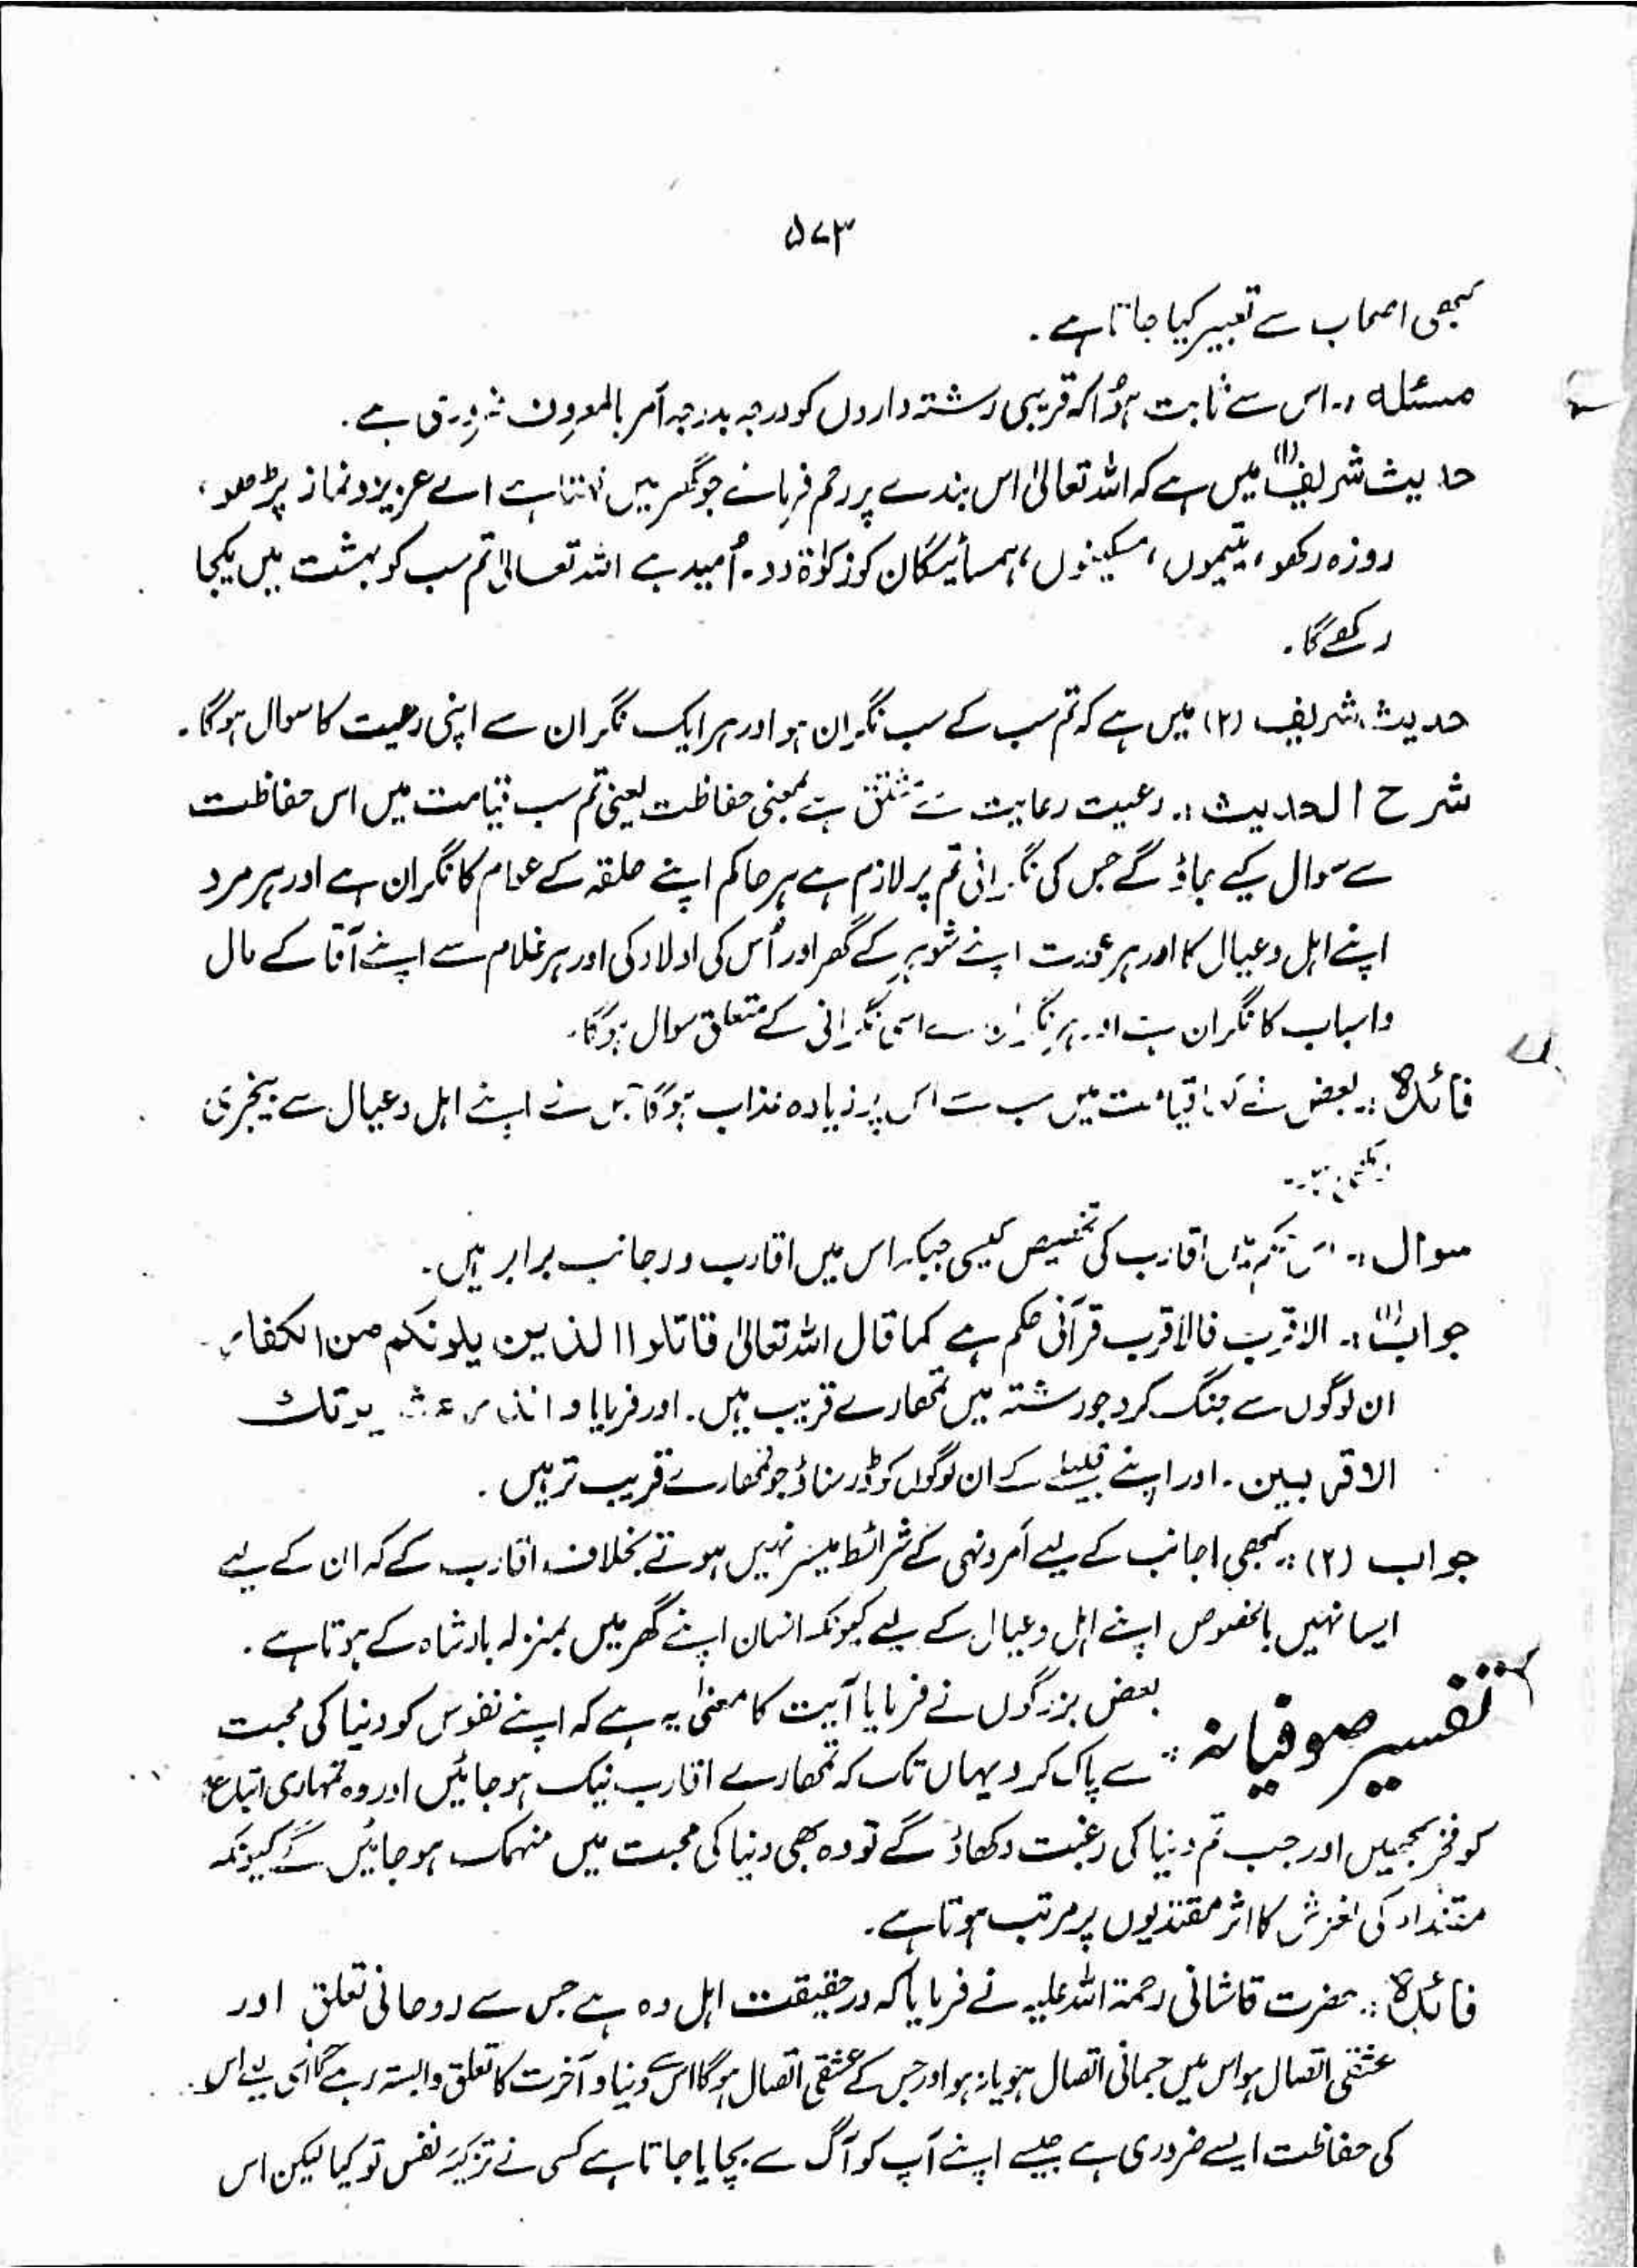 ۵۷۳
کبھی اصحاب سے تعبیر کیا جاتا ہے۔
مسئلہ :۔ اس سے ثابت ہوُا کہ قریبی رشتہ داروں کو درجہ بدرجہ آمر بالمعروف ضروری ہے۔
حدیث شریف (۱) میں ہے کہ اللہ تعالیٰ اس بندے پر رحم فرمائے جو گھر میں کہتا ہے اے عزیزو نماز پڑھو،
روزہ رکھو، یتیموں، مسکینوں، ہمسائیگان کو زکوٰۃ دو۔ اُمید ہے اللہ تعالیٰ تم سب کو بہشت میں یکجا
رکھے گا۔
حدیث شریف (۲) میں ہے کہ تم سب کے سب نگران ہو اور ہر ایک نگران سے اپنی رعیت کا سوال ہو گا۔
شرح الحدیث :۔ رعیت رعایت سے مشتق ہے بمعنی حفاظت یعنی تم سب قیامت میں اس حفاظت
سے سوال کیے جاؤ گے جس کی نگرانی تم پر لازم ہے ہر حاکم اپنے حلقہ کے عوام کا نگران ہے اور ہر مرد
اپنے اہل و عیال کا اور ہر عورت اپنے شوہر کے گھر اور اُس کی اولاد کی اور ہر غلام سے اپنے آقا کے مال
و اسباب کا نگران ہے اور ہر نگران سے اسی نگرانی کے متعلق سوال ہو گا۔
فائدہ :۔ بعض نے کہا قیامت میں سب سے اس پر زیادہ عذاب ہو گا جس نے اپنے اہل و عیال سے بیخبری
سوال :۔ اس حکم میں اقارب کی تخصیص کیسی جبکہ اس میں اقارب و رجانب برابر ہیں۔
جواب (۱) :۔ الاقرب فالاقرب قرآنی حکم ہے کما قال اللہ تعالیٰ قاتلوا الذین یلونکم من الکفار۔
ان لوگوں سے جنگ کرو جو رشتہ میں تمھارے قریب ہیں۔ اور فرمایا و انذر عشیرتک
الاقربین۔ اور اپنے قبیلے کے ان لوگوں کو ڈر سناؤ جو تمھارے قریب تر ہیں۔
جواب (۲) :۔ کبھی اجانب کے لیے آمر و نہی کے شرائط میسر نہیں ہوتے بخلاف اقارب کے کہ ان کے لیے
ایسا نہیں بالخصوص اپنے اہل و عیال کے لیے کیونکہ انسان اپنے گھر میں بمنزلہ بادشاہ کے ہوتا ہے۔
تفسیر صوفیانہ :۔ بعض بزرگوں نے فرمایا آیت کا معنیٰ یہ ہے کہ اپنے نفوس کو دنیا کی محبت
سے پاک کرو یہاں تک کہ تمھارے اقارب نیک ہو جائیں اور وہ تمہاری اتباع
کو فخر سمجھیں اور جب تم دنیا کی رغبت دکھاؤ گے تو وہ بھی دنیا کی محبت میں منہمک ہو جائیں گے کیونکہ
مقتداء کی لغزش کا اثر مقتدیوں پر مرتب ہوتا ہے۔
فائدہ :۔ حضرت قاشانی رحمۃ اللہ علیہ نے فرمایا کہ درحقیقت اہل وہ ہے جس سے روحانی تعلق اور
عشقی اتصال ہو اس میں جسمانی اتصال ہو یا نہ ہو اور جس کے عشقی اتصال ہو گا اس سے دنیا و آخرت کا تعلق وابستہ رہے گا اسی لیے اس
کی حفاظت ایسے ضروری ہے جیسے اپنے آپ کو آگ سے بچایا جاتا ہے کسی نے تزکیۂ نفس تو کیا لیکن اس